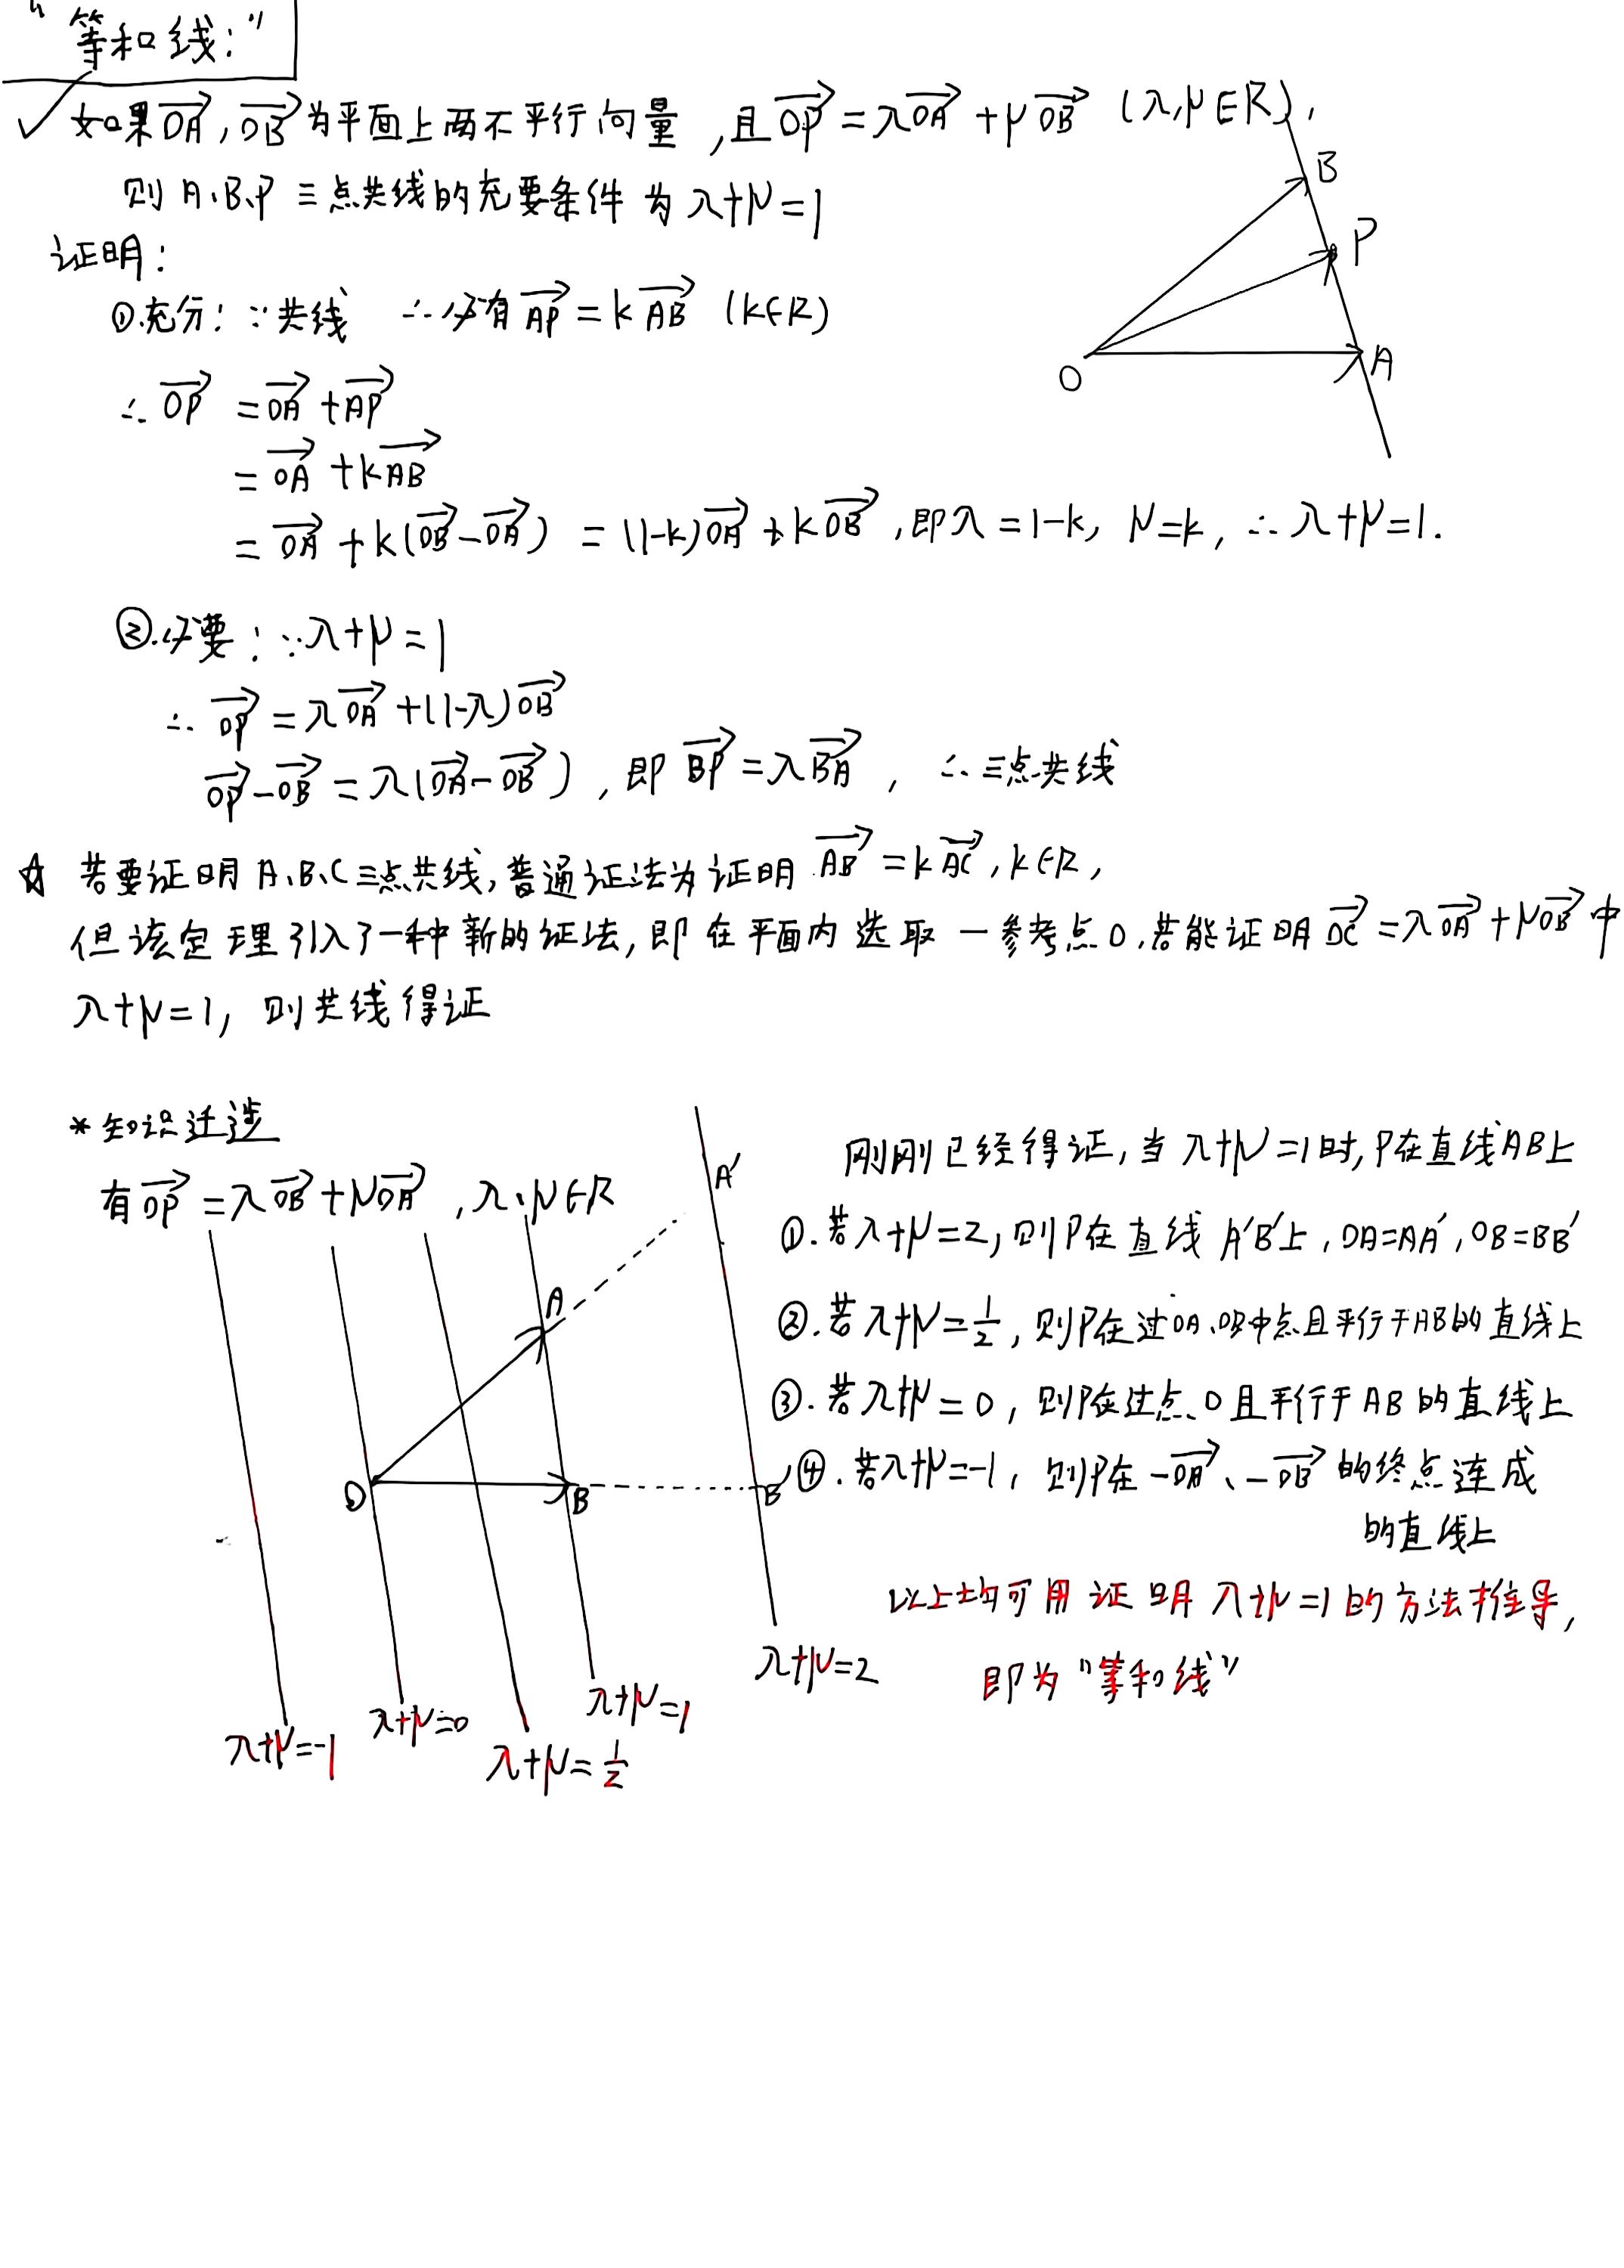 “等和线：”
如果OA，OB为平面上两不平行向量，且OP=λOA+μOB（λ,μ∈R），
则A、B、P三点共线的充要条件为λ+μ=1
B
P
O
A
证明：
①.充分：∵共线 ∴必有AP=kAB（k∈R）
∴OP=OA+AP
=OA+kAB
=OA+k(OB-OA)=(1-k)OA+kOB，即λ=1-k，μ=k，∴λ+μ=1.
②.必要：∵λ+μ=1
∴OP=λOA+(1-λ)OB
OP-OB=λ(OA-OB)，即BP=λBA，∴三点共线
☆ 若要证明A、B、C三点共线，普通证法为证明AB=kAC，k∈R，
但该定理引入了一种新的证法，即在平面内选取一参考点O，若能证明OC=λOA+μOB中
λ+μ=1，则共线得证
*知识迁移
有OP=λOB+μOA，λ、μ∈R
A'
A
O
B
B'
λ+μ=-1
λ+μ=0
λ+μ=1/2
λ+μ=1
λ+μ=2
刚刚已经得证，当λ+μ=1时，P在直线AB上
①.若λ+μ=2，则P在直线A'B'上，OA=AA'，OB=BB'
②.若λ+μ=1/2，则P在过OA、OB中点且平行于AB的直线上
③.若λ+μ=0，则P在过点O且平行于AB的直线上
④.若λ+μ=-1，则P在-OA、-OB的终点连成
的直线上
以上均可用证明λ+μ=1的方法推导，
即为“等和线”